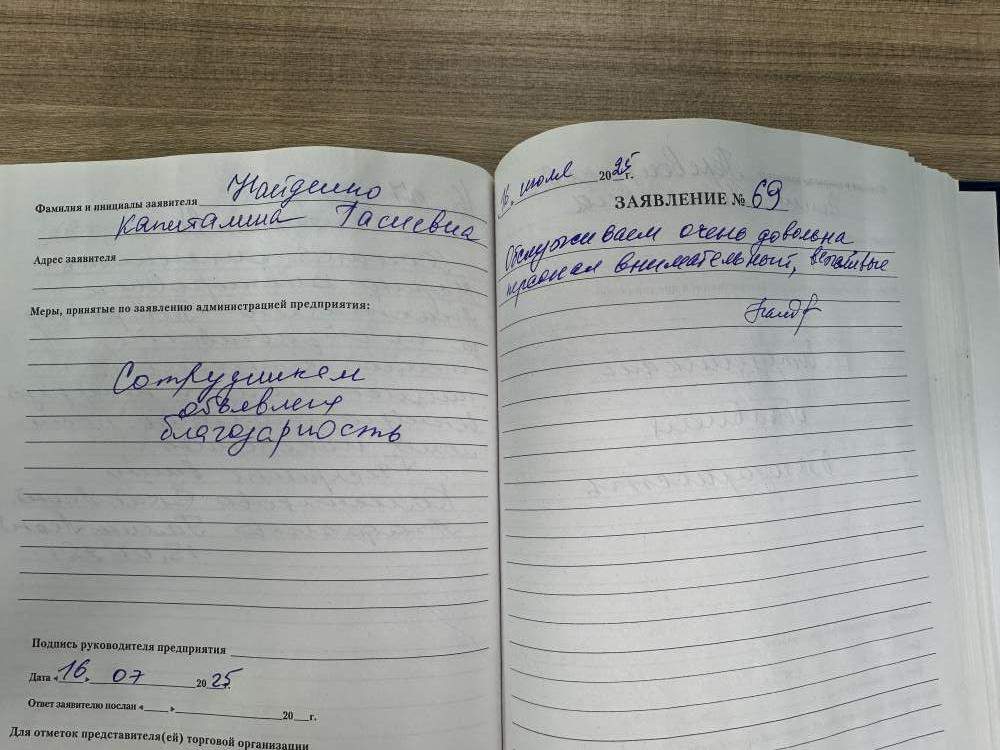 Фамилия и инициалы заявителя Найденко
Капиталина Тасиевна
Адрес заявителя
Меры, принятые по заявлению администрацией предприятия:
Сотрудникам
объявлена
благодарность
Подпись руководителя предприятия
Дата «16» 07 2025г.
Ответ заявителю послан «___» 20__г.
Для отметок представителя(ей) торговой организации
16, июля 2025г.
ЗАЯВЛЕНИЕ № 69
Обслуживаем очень довольна
персонал внимательный, вежливые